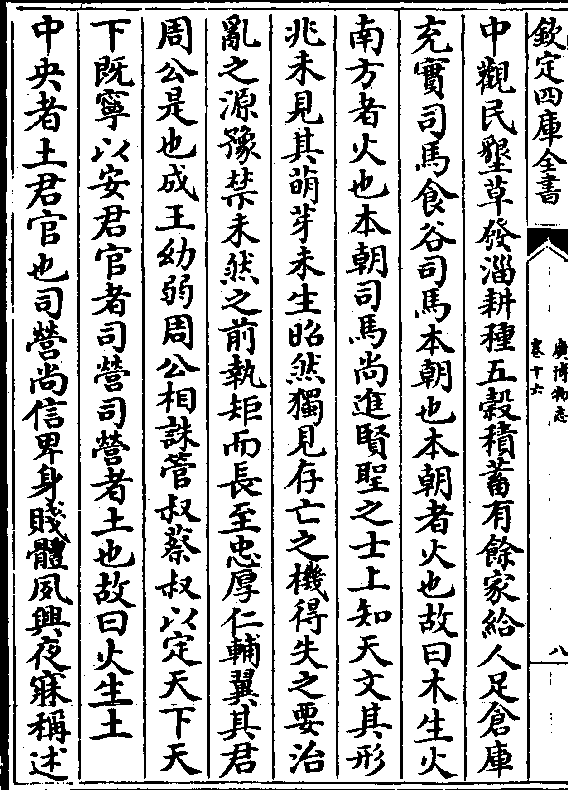 欽定四庫全書
廣博物志
卷十六
八
中觀民墾草發淄耕種五穀積蓄有餘家給人足倉庫
充實司馬食谷司馬本朝也本朝者火也故曰木生火
南方者火也本朝司馬尚進賢聖之士上知天文其形
兆未見其萌芽未生昭然獨見存亡之機得失之要治
亂之源豫禁未然之前執矩而長至忠厚仁輔翼其君
周公是也成王幼弱周公相誅管叔蔡叔以定天下天
下既寧以安君官者司營司營者土也故曰火生土
中央者土君官也司營尚信卑身賤體夙興夜寐稱述